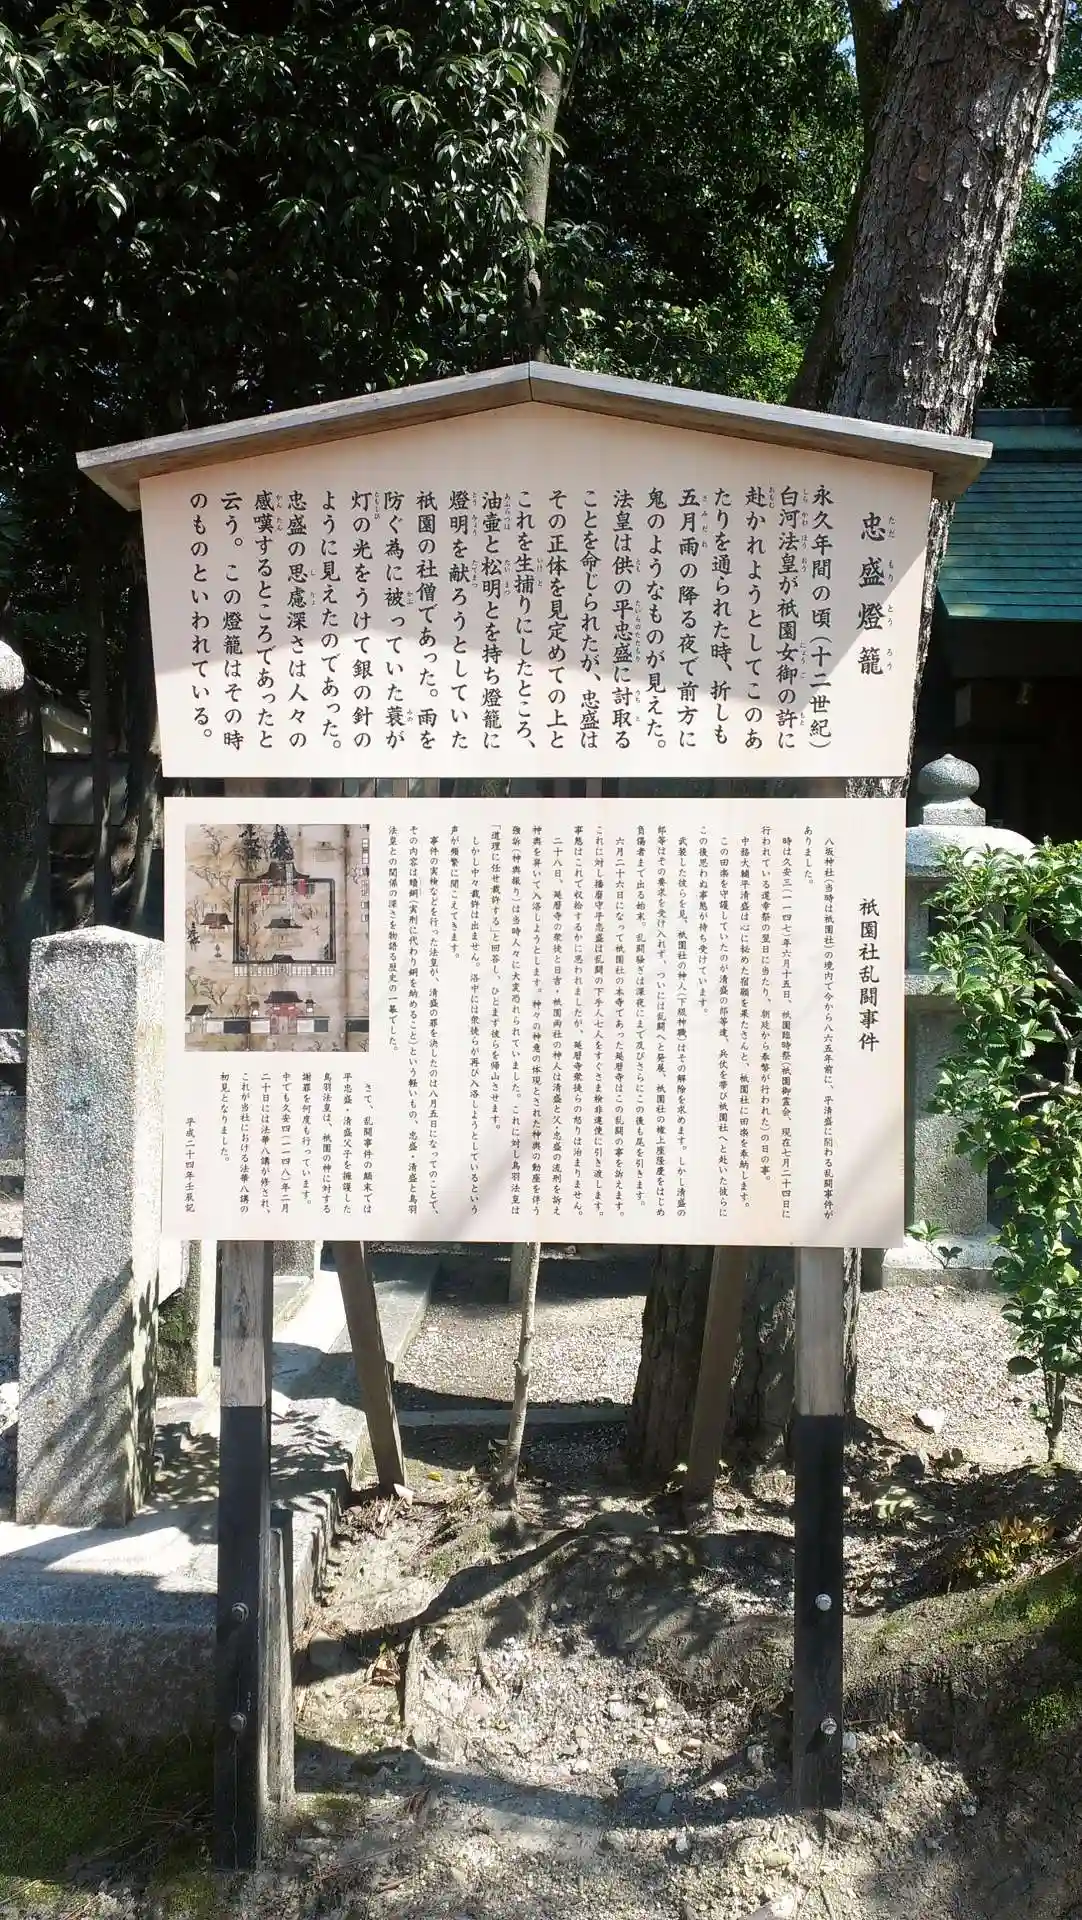 忠盛燈籠
永久年間の頃（十二世紀）
白河法皇が祇園女御の許に
赴かれようとしてこのあ
たりを通られた時、折しも
五月雨の降る夜で前方に
鬼のようなものが見えた。
法皇は供の平忠盛に討取る
ことを命じられたが、忠盛は
その正体を見定めての上と
これを生捕りにしたところ、
油壷と松明とを持ち燈籠に
燈明を献ろうとしていた
祇園の社僧であった。雨を
防ぐ為に被っていた蓑が
灯の光をうけて銀の針の
ように見えたのであった。
忠盛の思慮深さは人々の
感嘆するところであったと
云う。この燈籠はその時
のものといわれている。
祇園社乱闘事件
八坂神社（当時は祇園社）の境内で今から八六五年前に、平清盛に関わる乱闘事件が
ありました。
時は久安三（一一四七）年六月十五日、祇園臨時祭（祇園御霊会、現在七月二十四日に
行われている還幸祭の翌日に当たり、朝廷から奉幣が行われた）の日の事。
中務大輔平清盛は心に秘めた宿願を果たさんと、祇園社に田楽を奉納します。
この田楽を守護していたのが清盛の郎等達、兵仗を帯び祇園社へと赴いた彼らに
この後思わぬ事態が待ち受けています。
武装した彼らを見、祇園社の神人（下級神職）はその解除を求めます。しかし清盛の
郎等はその要求を受け入れず、ついには乱闘へと発展、祇園社の権上座隆慶をはじめ
負傷者まで出る始末、乱闘騒ぎは深夜にまで及びさらにこの後も尾を引きます。
六月二十六日になって祇園社の本寺であった延暦寺はこの乱闘の事を訴えます。
これに対し播磨守平忠盛は乱闘の下手人七人をすぐさま検非違使に引き渡します。
事態はこれで収拾するかに思われましたが、延暦寺衆徒らの怒りは治まりません。
二十八日、延暦寺の衆徒と日吉・祇園両社の神人は清盛と父・忠盛の流刑を訴え
神輿を舁いて入洛しようとします。神々の神意の体現とされた神輿の動座を伴う
強訴（神輿振り）は当時人々に大変恐れられていました。これに対し鳥羽法皇は
「道理に任せ裁許する」と回答し、ひとまず彼らを帰山させます。
しかし中々裁許は出ません。洛中には衆徒らが再び入洛しようとしているという
声が頻繁に聞こえてきます。
事件の実検などを行った法皇が、清盛の罪を決したのは八月五日になってのことで、
その内容は贖銅（実刑に代わり銅を納めること）という軽いもの、忠盛・清盛と鳥羽
法皇との関係の深さを物語る歴史の一幕でした。
さて、乱闘事件の顛末では
平忠盛・清盛父子を擁護した
鳥羽法皇は、祇園の神に対する
謝罪を何度も行っています。
中でも久安四（一一四八）年二月
二十日には法華八講が修され、
これが当社における法華八講の
初見となりました。
平成二十四年壬辰記